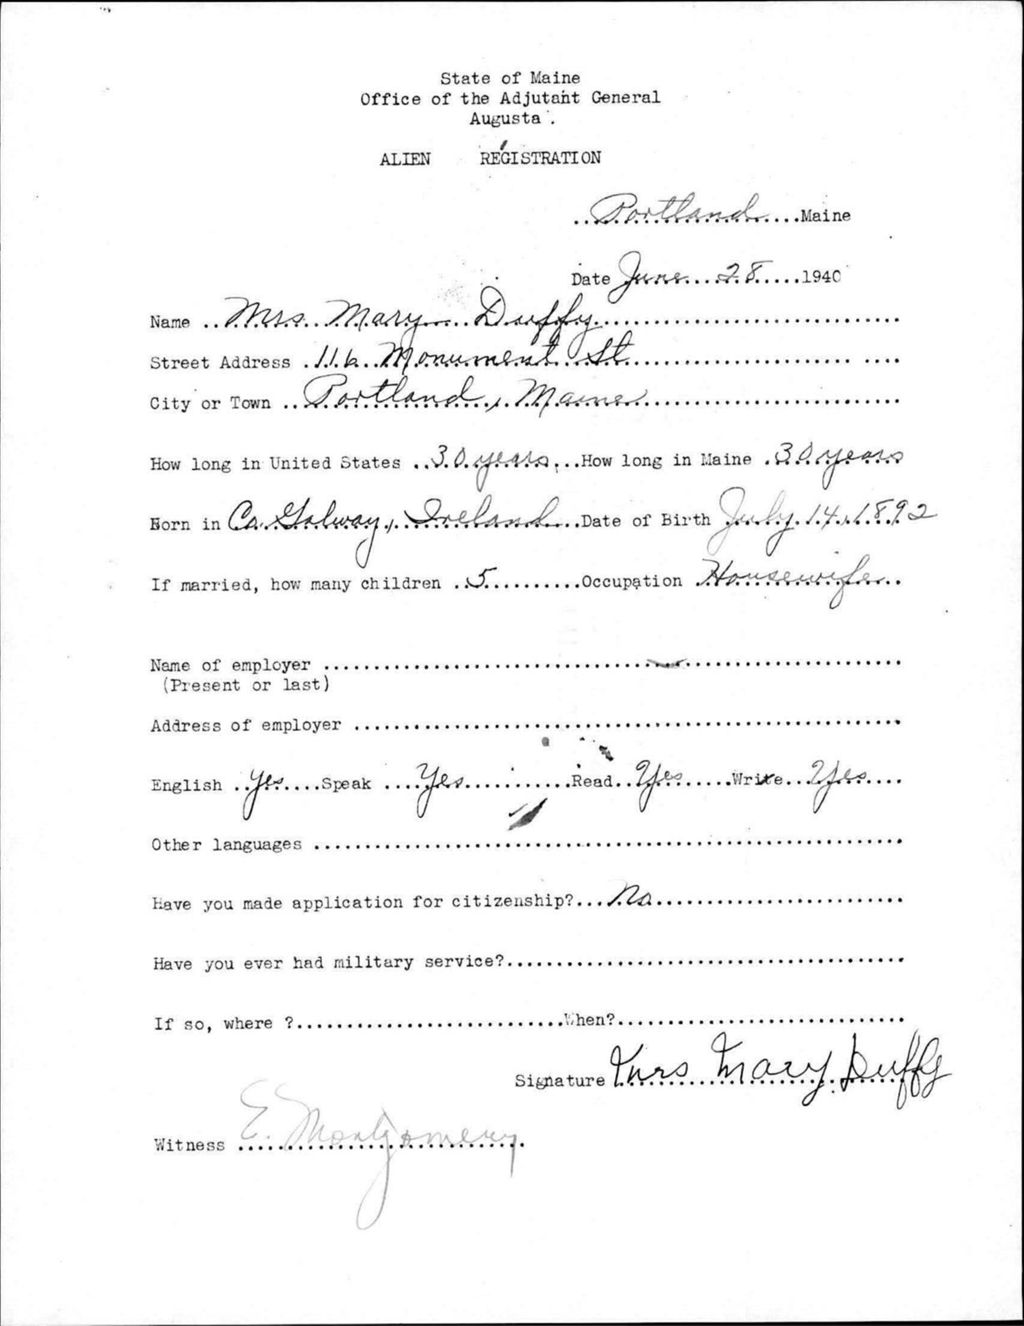 State of Maine
Office of the Adjutant General
Augusta.
ALIEN REGISTRATION
Portland Maine
Date June 28 1940
Name Mrs. Mary Duffy
Street Address 116 Monument St.
City or Town Portland, Maine
How long in United States 30 years How long in Maine 30 years
Born in Co. Galway, Ireland Date of Birth July 14, 1892
If married, how many children 5 Occupation Housewife
Name of employer
(Present or last)
Address of employer
English Yes Speak Yes Read Yes Write Yes
Other languages
Have you made application for citizenship? No
Have you ever had military service?
If so, where ? When?
Signature Mrs Mary Duffy
Witness E. Montgomery